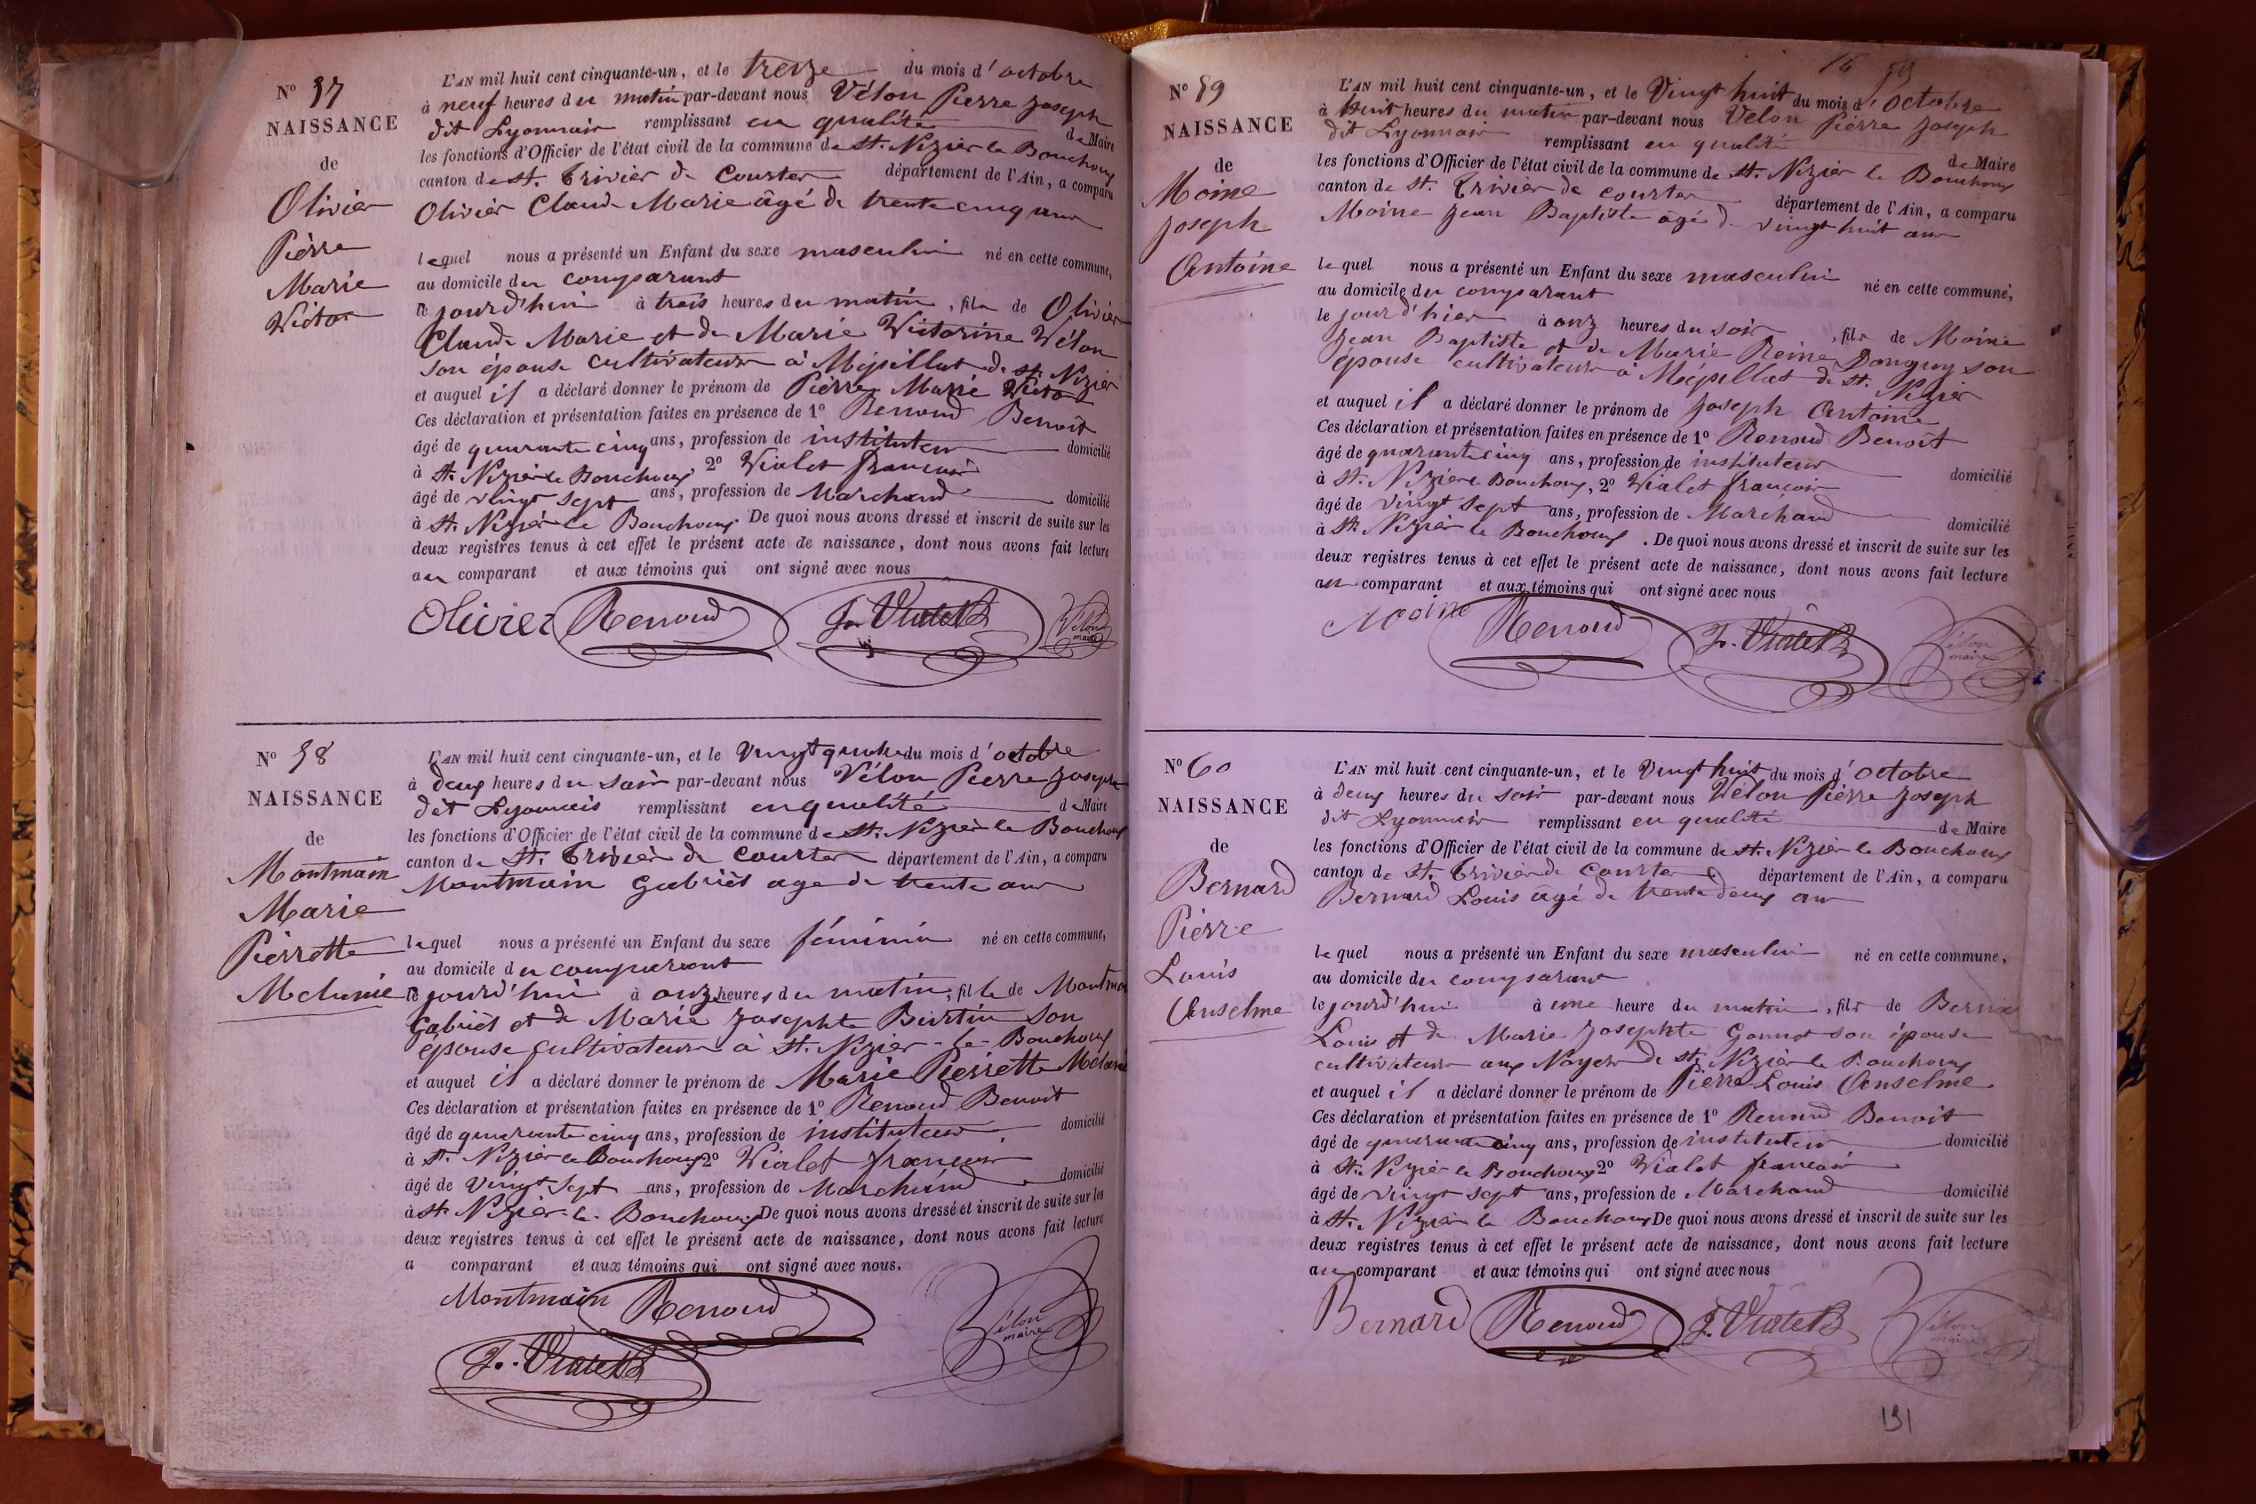 N° 57
NAISSANCE
de
Olivier
Pierre
Marie
Victor
L'AN mil huit cent cinquante-un, et le treize du mois d'octobre
à neuf heures du matin par-devant nous Vélon Pierre Joseph
dit Lyonnais remplissant en qualité de Maire
les fonctions d'Officier de l'état civil de la commune de St. Nizier le Bouchoux
canton de St. Trivier de Courtes département de l'Ain, a comparu
Olivier Claude Marie âgé de trente cinq ans
lequel nous a présenté un Enfant du sexe masculin né en cette commune,
au domicile du comparant
le jourd'hui à trois heures du matin, fils de Olivier
Claude Marie et de Marie Victorine Vélon
son épouse cultivateurs à Mépillat de St. Nizier
et auquel il a déclaré donner le prénom de Pierre Marie Victor
Ces déclaration et présentation faites en présence de 1° Renoud Benoît
âgé de quarante cinq ans, profession de instituteur domicilié
à St. Nizier le Bouchoux 2° Vialet françois
âgé de vingt sept ans, profession de Marchand domicilié
à St. Nizier le Bouchoux De quoi nous avons dressé et inscrit de suite sur les
deux registres tenus à cet effet le présent acte de naissance, dont nous avons fait lecture
au comparant et aux témoins qui ont signé avec nous
Olivier Renoud F. Vialet Vélon maire
N° 58
NAISSANCE
de
Montmain
Marie
Pierrette
Mélanie
L'AN mil huit cent cinquante-un, et le Vingt quatre du mois d'octobre
à deux heures du soir par-devant nous Vélon Pierre Joseph
dit Lyonnais remplissant en qualité de Maire
les fonctions d'Officier de l'état civil de la commune de St. Nizier le Bouchoux
canton de St. Trivier de Courtes département de l'Ain, a comparu
Montmain Gabriel age de trente ans
lequel nous a présenté un Enfant du sexe féminin né en cette commune,
au domicile du comparant
le jourd'hui à onze heures du matin, fille de Montmain
Gabriel et de Marie Josephte Burtin son
épouse cultivateurs à St. Nizier-le-Bouchoux
et auquel il a déclaré donner le prénom de Marie Pierrette Mélanie
Ces déclaration et présentation faites en présence de 1° Renoud Benoît
âgé de quarante cinq ans, profession de instituteur domicilié
à St. Nizier le Bouchoux 2° Vialet françois
âgé de vingt sept ans, profession de Marchand domicilié
à St. Nizier-le-Bouchoux De quoi nous avons dressé et inscrit de suite sur les
deux registres tenus à cet effet le présent acte de naissance, dont nous avons fait lecture
a comparant et aux témoins qui ont signé avec nous.
Montmain Renoud Vélon maire
F. Vialet
59
N° 59
NAISSANCE
de
Moine
Joseph
Antoine
L'AN mil huit cent cinquante-un, et le Vingt huit du mois d'Octobre
à huit heures du matin par-devant nous Vélon Pierre Joseph
dit Lyonnais remplissant en qualité de Maire
les fonctions d'Officier de l'état civil de la commune de St. Nizier le Bouchoux
canton de St. Trivier de Courtes département de l'Ain, a comparu
Moine Jean Baptiste âgé de vingt huit ans
lequel nous a présenté un Enfant du sexe masculin né en cette commune,
au domicile du comparant
le jour d'hier à onze heures du soir, fils de Moine
Jean Baptiste et de Marie Reine Donguy son
épouse cultivateurs à Mépillat de St. Nizier
et auquel il a déclaré donner le prénom de Joseph Antoine
Ces déclaration et présentation faites en présence de 1° Renoud Benoît
âgé de quarante cinq ans, profession de instituteur domicilié
à St. Nizier le Bouchoux, 2° Vialet françois
âgé de vingt sept ans, profession de Marchand domicilié
à St. Nizier le Bouchoux. De quoi nous avons dressé et inscrit de suite sur les
deux registres tenus à cet effet le présent acte de naissance, dont nous avons fait lecture
au comparant et aux témoins qui ont signé avec nous
Moine Renoud F. Vialet Vélon maire
N° 60
NAISSANCE
de
Bernard
Pierre
Louis
Anselme
L'AN mil huit cent cinquante-un, et le Vingt huit du mois d'octobre
à deux heures du soir par-devant nous Vélon Pierre Joseph
dit Lyonnais remplissant en qualité de Maire
les fonctions d'Officier de l'état civil de la commune de St. Nizier le Bouchoux
canton de St. Trivier de Courtes département de l'Ain, a comparu
Bernard Louis âgé de trente deux ans
lequel nous a présenté un Enfant du sexe masculin né en cette commune,
au domicile du comparant
le jourd'hui à une heure du matin, fils de Bernard
Louis et de Marie Josephte Gonnot son épouse
cultivateurs aux Noyers de St. Nizier le Bouchoux
et auquel il a déclaré donner le prénom de Pierre Louis Anselme
Ces déclaration et présentation faites en présence de 1° Renoud Benoît
âgé de quarante cinq ans, profession de instituteur domicilié
à St. Nizier le Bouchoux 2° Vialet françois
âgé de vingt sept ans, profession de Marchand domicilié
à St. Nizier le Bouchoux De quoi nous avons dressé et inscrit de suite sur les
deux registres tenus à cet effet le présent acte de naissance, dont nous avons fait lecture
au comparant et aux témoins qui ont signé avec nous
Bernard Renoud F. Vialet Vélon maire
131